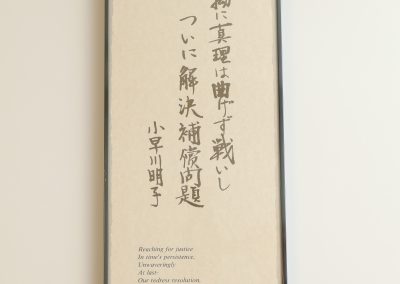 に真理は曲げず戦いし
ついに解決補償問題
小早川明子
Reaching for justice
In time's persistence,
Unwaveringly
At last-
Our redress resolution.